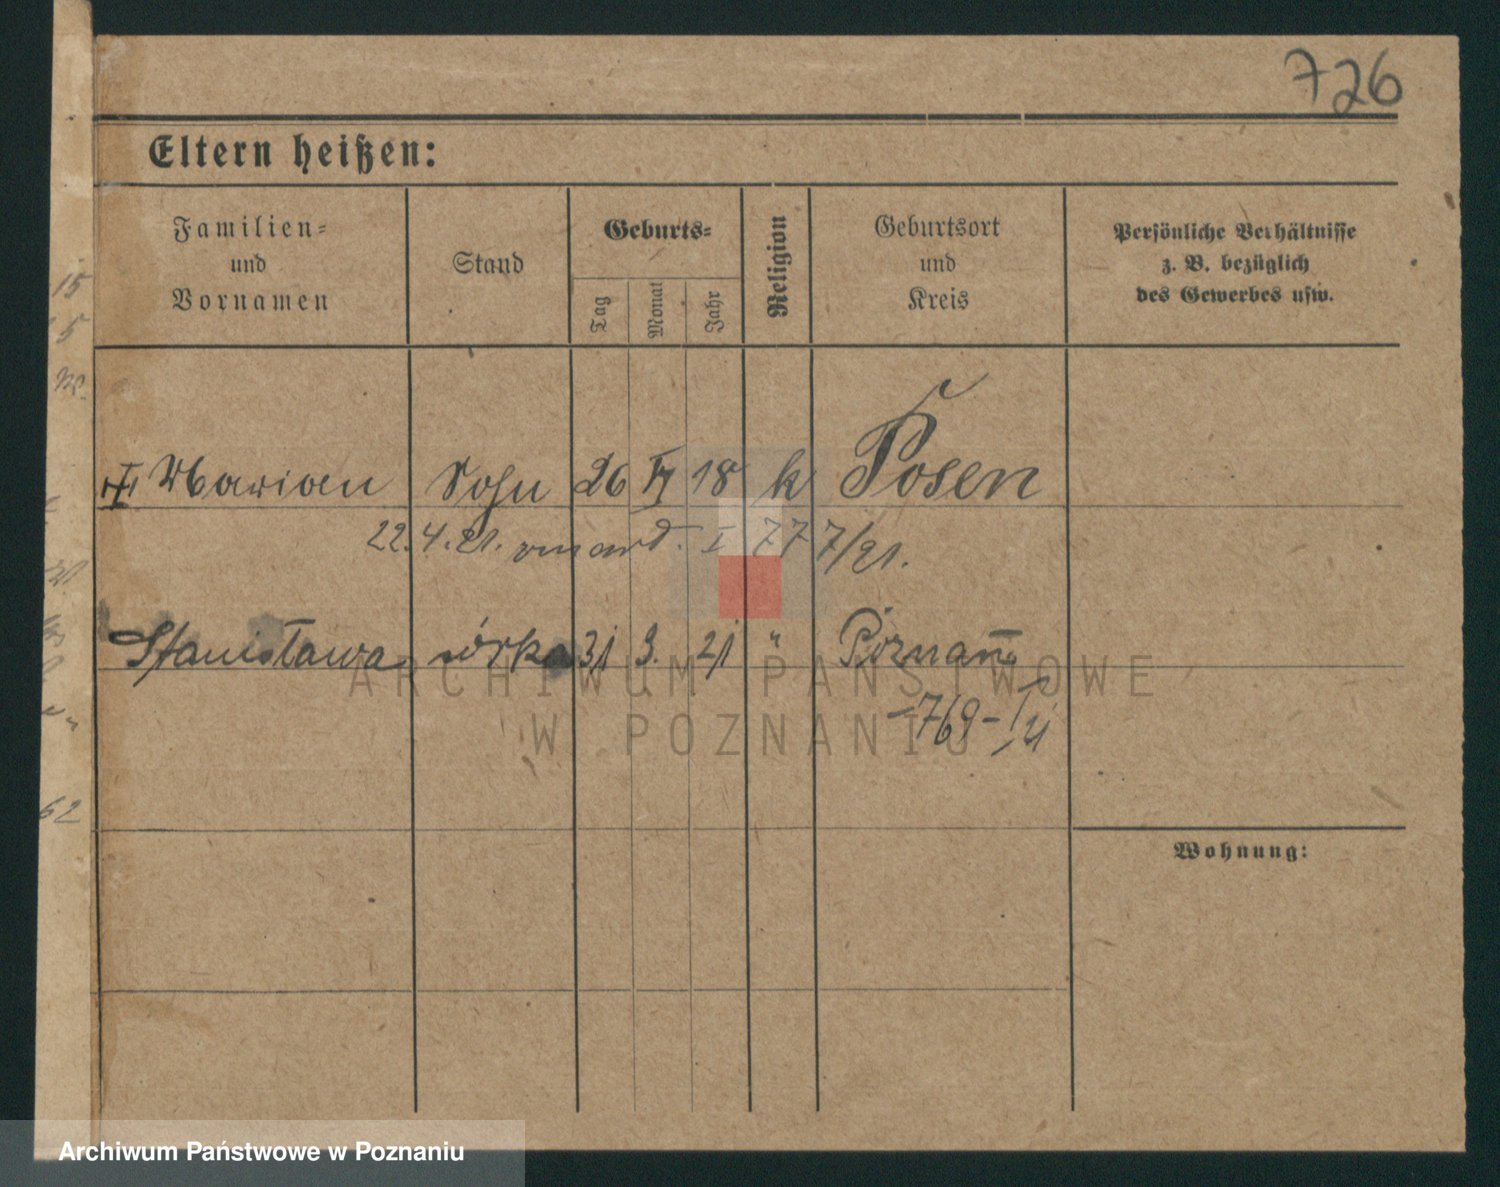 726
Eltern heißen:
Familien-
und
Vornamen
Stand
Geburts-
Tag
Monat
Jahr
Religion
Geburtsort
und
Kreis
Persönliche Verhältnisse
z. B. bezüglich
des Gewerbes usw.
15
5
Marian Sohn 26 18 k Posen
22.4.21. I 777/21.
Stanisława córka 31 3. 21 " Poznań
-769-I 21
62
Wohnung:
ARCHIWUM PAŃSTWOWE
W POZNANIU
Archiwum Państwowe w Poznaniu